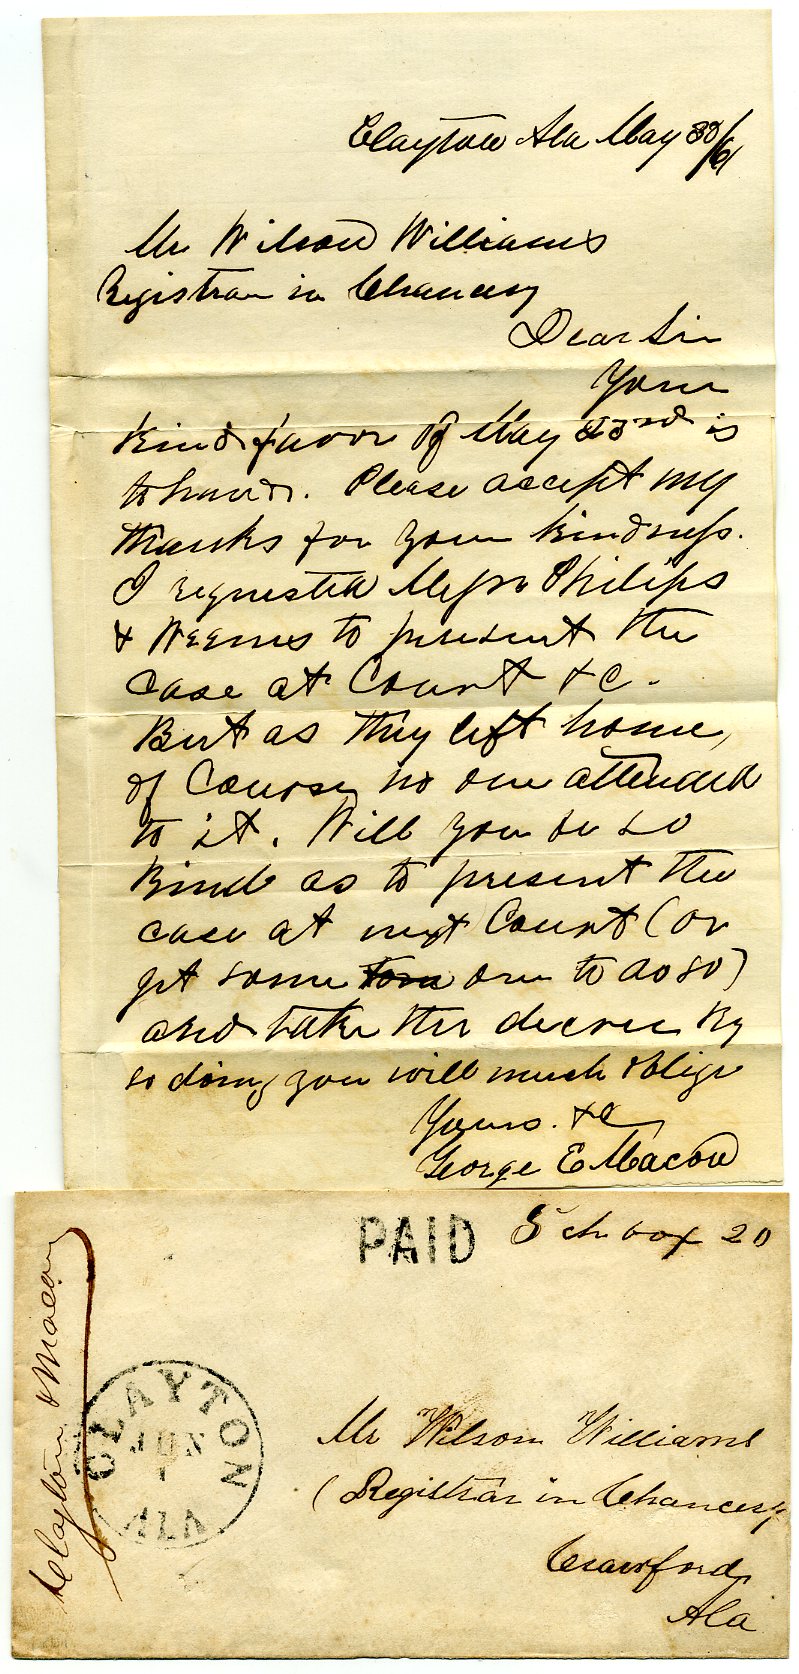 Clayton Ala May 30/61
Mr Wilson Williams
Registrar in Chancery
Dear Sir
Your
kind favor of May 23rd is
to hand. Please accept my
thanks for your kindness.
I requested Messrs Philips
& Weems to present the
case at Court &c.
But as they left home,
of course, no one attended
to it. Will you be so
kind as to present the
case at next Court (or
get some one to do so)
and take the decree By
so doing you will much oblige
Yours. &c
George E Macon
PAID
5 ch box 20
Clayton & Macon
CLAYTON
JUN
1
ALA
Mr Wilson Williams
(Registrar in Chancery
Crawford
Ala